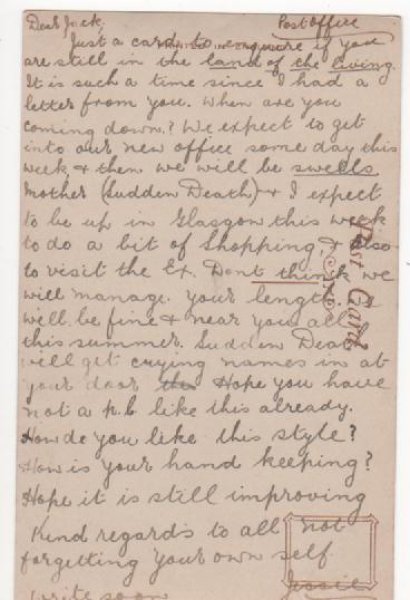 Dear Jack, Post Office
Just a card to enquire if you
are still in the land of the living.
It is such a time since I had a
letter from you. When are you
coming down? We expect to get
into our new office some day this
week & then we will be swells
Mother (Sudden Death) & I expect
to be up in Glasgow this week
to do a bit of Shopping, & also
to visit the Ex. Dont think we
will manage. your length. We
will be fine & near you all
this summer. Sudden Death
will get crying names in at
your door Hope you have
not a p.c like this already.
How do you like this style?
How is your hand keeping?
Hope it is still improving
Kind regards to all not
forgetting your own self
write soon Jessie
Post Card